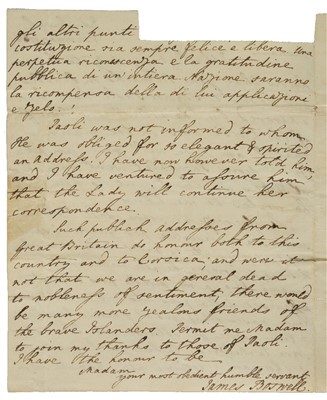 gli altri punti
costituzione sia sempre felice e libera. Una
perpetua riconoscenza e la gratitudine
pubblica di un'intiera Nazione saranno
la ricompensa della di lui applicazione
e Zelo.
Paoli was not informed to whom
He was obliged for so elegant & spirited
an address. I have now however told him,
and I have ventured to assure him
that the Lady will continue her
correspondence.
Such publick addresses from
Great Britain do honour both to this
country and to Corsica; and were it
not that we are in general dead
to nobleness of sentiment, there would
be many more zealous friends of
the brave Islanders. Permit me Madam
to join my thanks to those of Paoli.
I have the honour to be
Madam
your most obedient humble servant
James Boswell